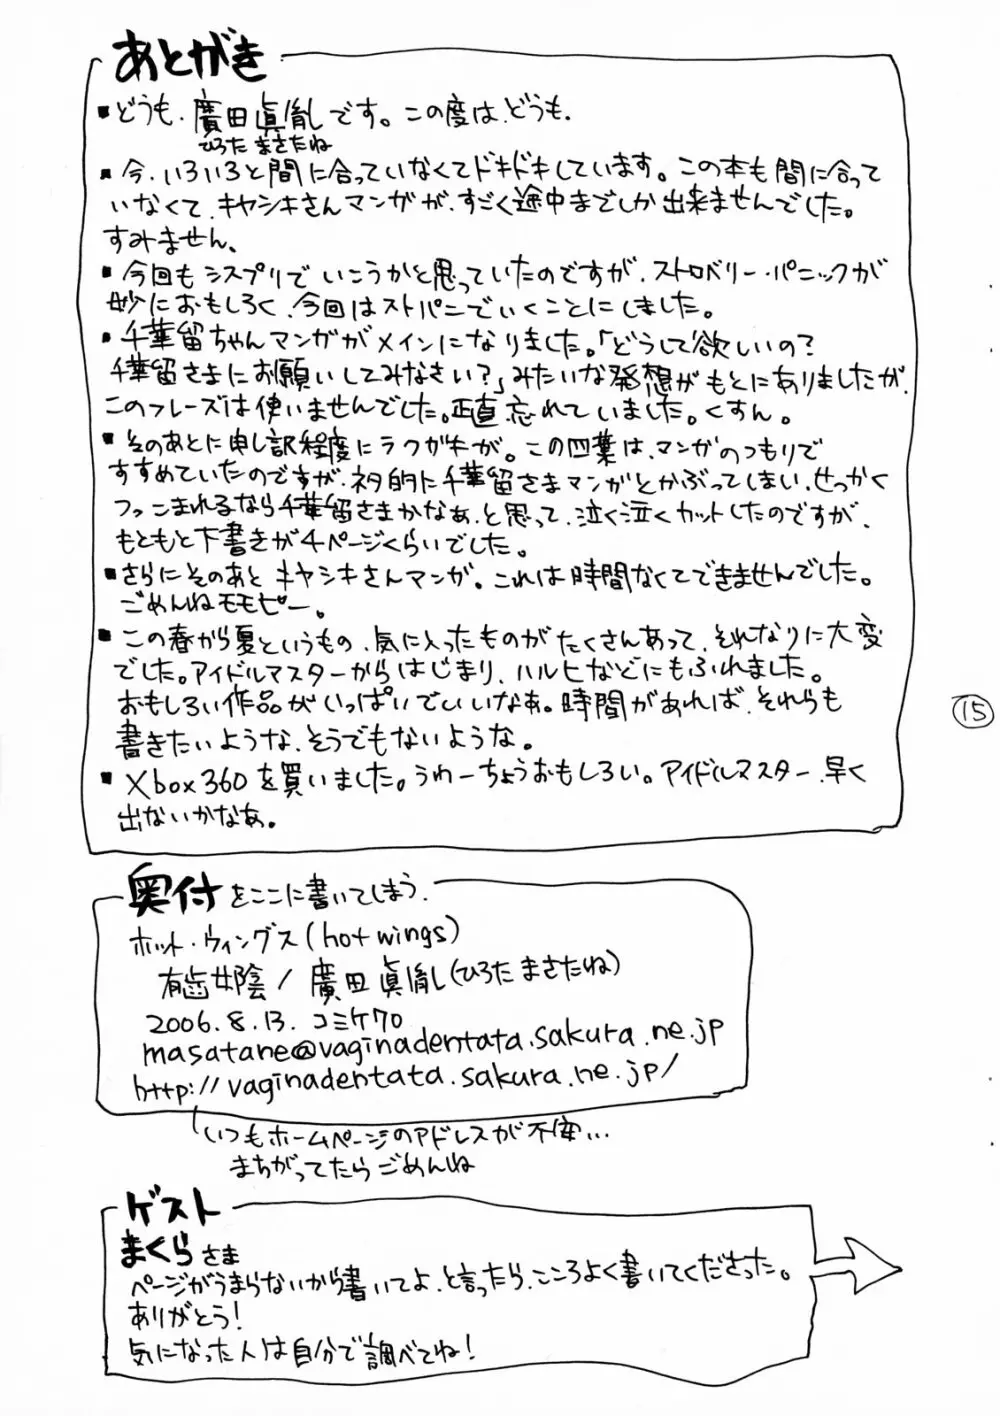 あとがき
▪どうも、廣田眞胤です。この度は、どうも。
ひろた まさたね
▪今、いろいろと間に合っていなくてドキドキしています。この本も間に合って
いなくて、キヤシキさんマンガが、すごく途中までしか出来ませんでした。
すみません、
▪今回もシスプリでいこうかと思っていたのですが、ストロベリー・パニックが
妙におもしろく、今回はストパニでいくことにしました。
▪千華留ちゃんマンガがメインになりました。「どうして欲しいの?
千華留さまにお願いしてみなさい?」みたいな発想がもとにありましたが、
このフレーズは使いませんでした。正直忘れていました。くすん。
▪そのあとに申し訳程度にラクガキが。この四葉は、マンガのつもりで
すすめていたのですが、ネタ的に千華留さまマンガとかぶってしまい、せっかく
つっこまれるなら千華留さまかなぁ、と思って、泣く泣くカットしたのですが、
もともと下書きが4ページくらいでした。
▪さらにそのあとキヤシキさんマンガ。これは時間なくてできませんでした。
ごめんねモモピー。
▪この春から夏というもの、気に入ったものがたくさんあって、それなりに大変
でした。アイドルマスターからはじまり、ハルヒなどにもふれました。
おもしろい作品がいっぱいでいいなぁ。時間があれば、それらも
書きたいような、そうでもないような。
▪Xbox360を買いました。うわーちょうおもしろい。アイドルマスター、早く
出ないかなあ。
15
奥付をここに書いてしまう、
ホット・ウィングス(hot wings)
有歯女陰/廣田眞胤(ひろた まさたね)
2006.8.13.コミケ70
masatane@vaginadentata.sakura.ne.jp
http://vaginadentata.sakura.ne.jp/
いつもホームページのアドレスが不安...
まちがってたらごめんね
ゲスト
まくらさま
ページがうまらないから書いてよ、と言ったら、こころよく書いてくださった。
ありがとう!
気になった人は自分で調べてね!